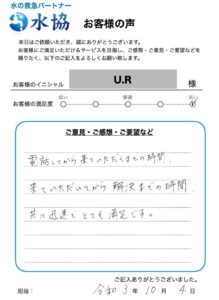 水の救急パートナー
水協 お客様の声
本日はご依頼いただき、誠にありがとうございます。
お客様にご満足いただけるサービスを目指し、ご感想・ご意見・ご要望などを
賜りたく、以下のご記入をよろしくお願い致します。
お客様のイニシャル U.R 様
低い 普通 高い
お客様の満足度
ご意見・ご感想・ご要望など
電話してから来ていただくまでの時間、
来ていただいてから解決までの時間、
共に迅速でとても満足です。
ご記入ありがとうございました。
担当： 令和 3年 10月 4日